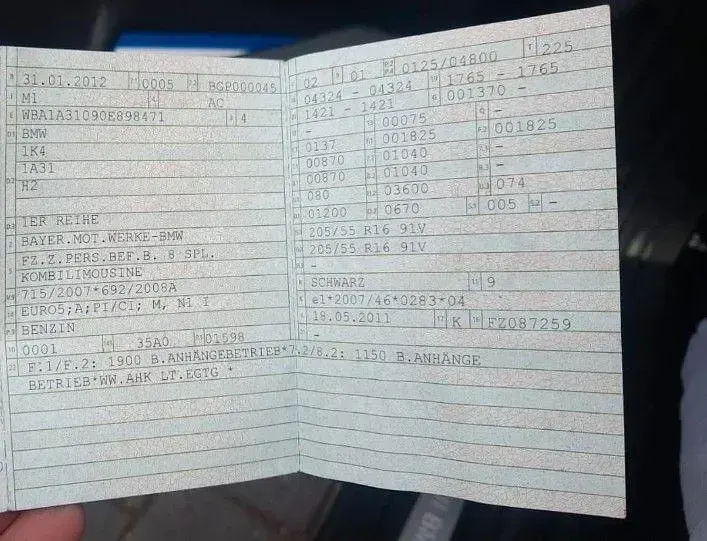 31.01.2012 0005 BGP000045
M1 AC
WBA1A31090E898471 4
BMW
1K4
1A31
H2
1ER REIHE
BAYER.MOT.WERKE-BMW
FZ.Z.PERS.BEF.B. 8 SPL.
KOMBILIMOUSINE
715/2007*692/2008A
EURO5;A;PI/CI; M, N1 I
BENZIN
0001 35A0 01598
F.1/F.2: 1900 B.ANHÄNGEBETRIEB*7.2/8.2: 1150 B.ANHÄNGE
BETRIEB*WW.AHK LT.EGTG *
02 01 0125/04800 T 225
04324 - 04324 1765 - 1765
1421 - 1421 G 001370 -
- 00075 Q -
0137 001825 001825
00870 01040 -
00870 01040 -
080 03600 074
01200 0670 005 -
205/55 R16 91V
205/55 R16 91V
-
SCHWARZ 9
e1*2007/46*0283*04
18.05.2011 K FZ087259
-